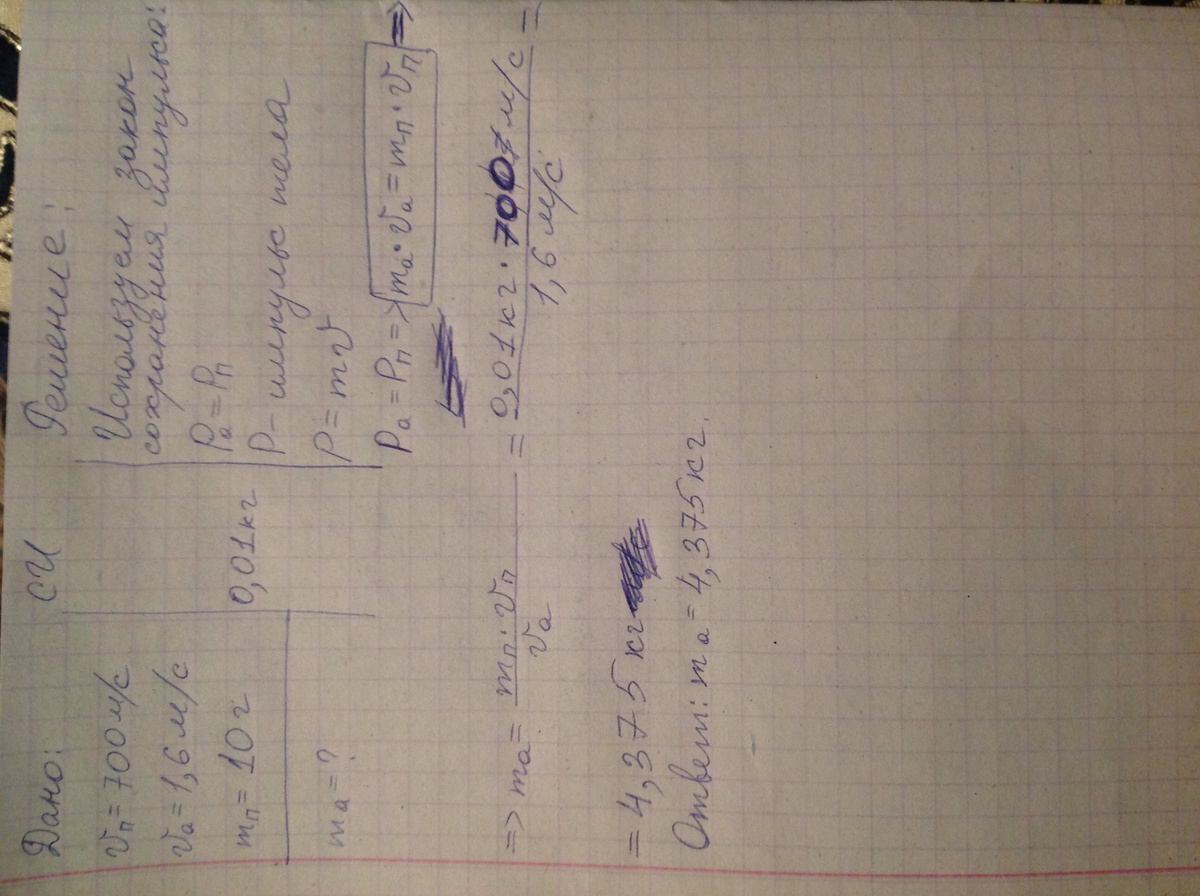 Дано:
vп = 700 м/с
va = 1,6 м/с
mп = 10 г
ma = ?
СИ
0,01 кг
Решение:
Используем закон
сохранения импульса:
Pa = Pп
P - импульс тела
P = mv
Pa = Pп => ma · va = mп · vп =>
=> ma = mп · vп / va = 0,01 кг · 700 м/с / 1,6 м/с =
= 4,375 кг
Ответ: ma = 4,375 кг.